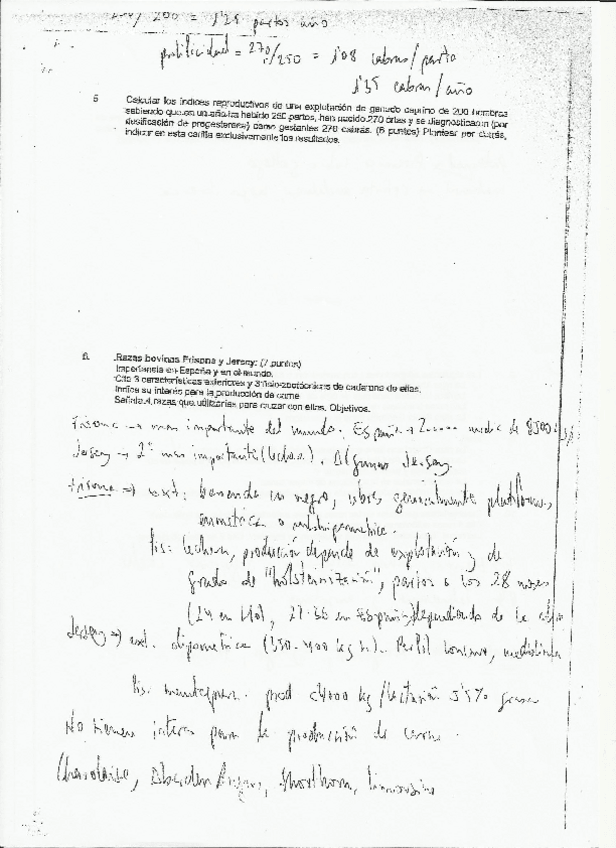 / 200 = 1'25 partos año
prolificidad = 270/250 = 1'08 cabras/parto
1'35 cabras/año
5 Calcular los índices reproductivos de una explotación de ganado caprino de 200 hembras
sabiendo que en un año ha habido 250 partos, han nacido 270 crías y se diagnosticaron (por
dosificación de progesterona) como gestantes 270 cabras. (6 puntos) Plantear por detrás,
indicar en esta carilla exclusivamente los resultados.
6. Razas bovinas Frisona y Jersey: (7 puntos)
Importancia en España y en el mundo.
Cite 3 características exteriores y 3 fisio-zootécnicas de cada una de ellas.
Indica su interés para la producción de carne
Señala 4 razas que utilizarías para cruzar con ellas. Objetivos.
Frisona → mas importante del mundo. España → media de
Jersey → 2ª mas importante (leche). Algunas Jersey
Frisona → ext: berrenda en negro, ubres generalmente
fis: lechera, producción depende de explotación y de
grado de "holsteinización", partos a los 28 meses
(24 en Hol, en España) dependiendo de la
Jersey → ext. elipometrica (350-400 kg). Perfil
fis. mantequera. prod <4000 kg/lactación
No tienen interes para la producción de carne
Charolaise, Aberdeen Angus, Shorthorn, limousine